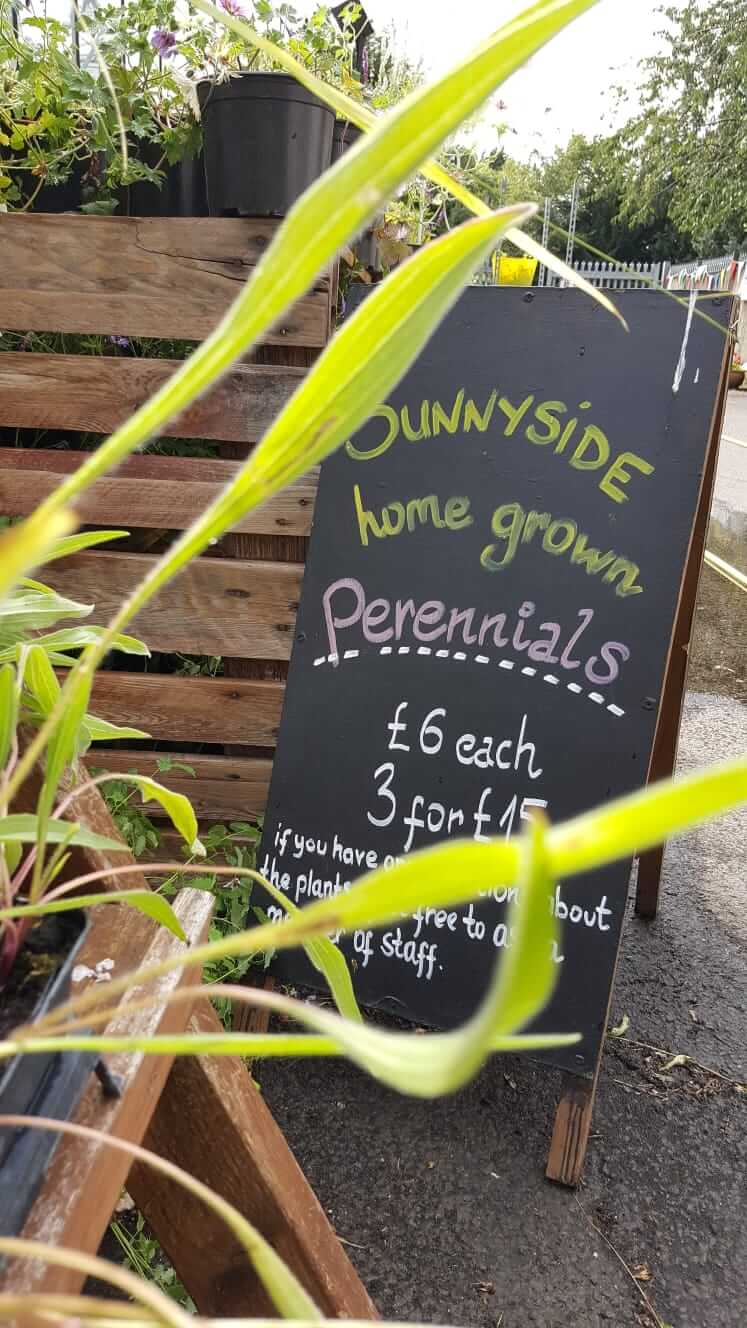 SUNNYSIDE
home grown
Perennials
£6 each
3 for £15
if you have any about
the plants free to
of staff.